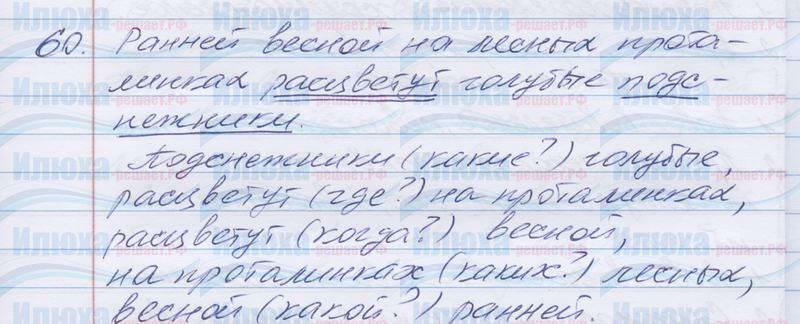 60. Ранней весной на лесных прота-
линках расцветут голубые подс-
нежники.
Подснежники (какие?) голубые,
расцветут (где?) на проталинках,
расцветут (когда?) весной,
на проталинках (каких?) лесных,
весной (какой?) ранней.